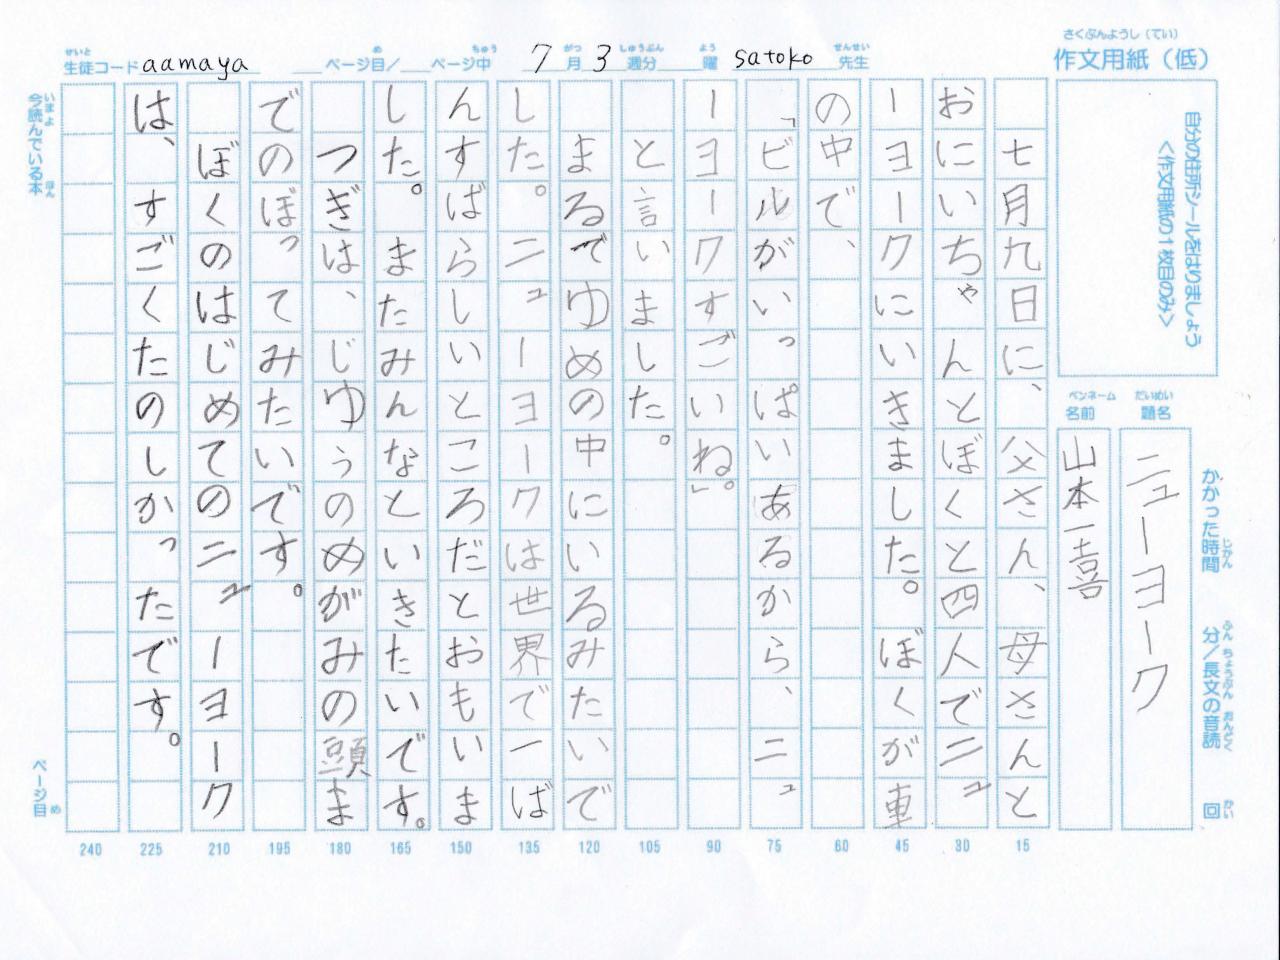 さくぶんようし（てい）
作文用紙（低）
せいと　め　ちゅう　がつ　しゅうぶん　よう　せんせい
生徒コード aamaya　ページ目/　ページ中　7月3週分　曜　satoko先生
自分の住所シールをはりましょう
＜作文用紙の1枚目のみ＞
だいめい
題名
ニューヨーク
ペンネーム
名前
山本一喜
かかった時間　分/長文の音読　回
じかん　ふん　ちょうぶん　おんどく　かい
七月九日に、父さん、母さんと
おにいちゃんとぼくと四人でニュ
ーヨークにいきました。ぼくが車
の中で、
「ビルがいっぱいあるから、ニュ
ーヨークすごいね」。
と言いました。
まるでゆめの中にいるみたいで
した。ニューヨークは世界で一ば
んすばらしいところだとおもいま
した。またみんなといきたいです。
つぎは、じゆうのめがみの頭ま
でのぼってみたいです。
ぼくのはじめてのニューヨーク
は、すごくたのしかったです。
いまよ　ほん
今読んでいる本
ページ目
め
240 225 210 195 180 165 150 135 120 105 90 75 60 45 30 15